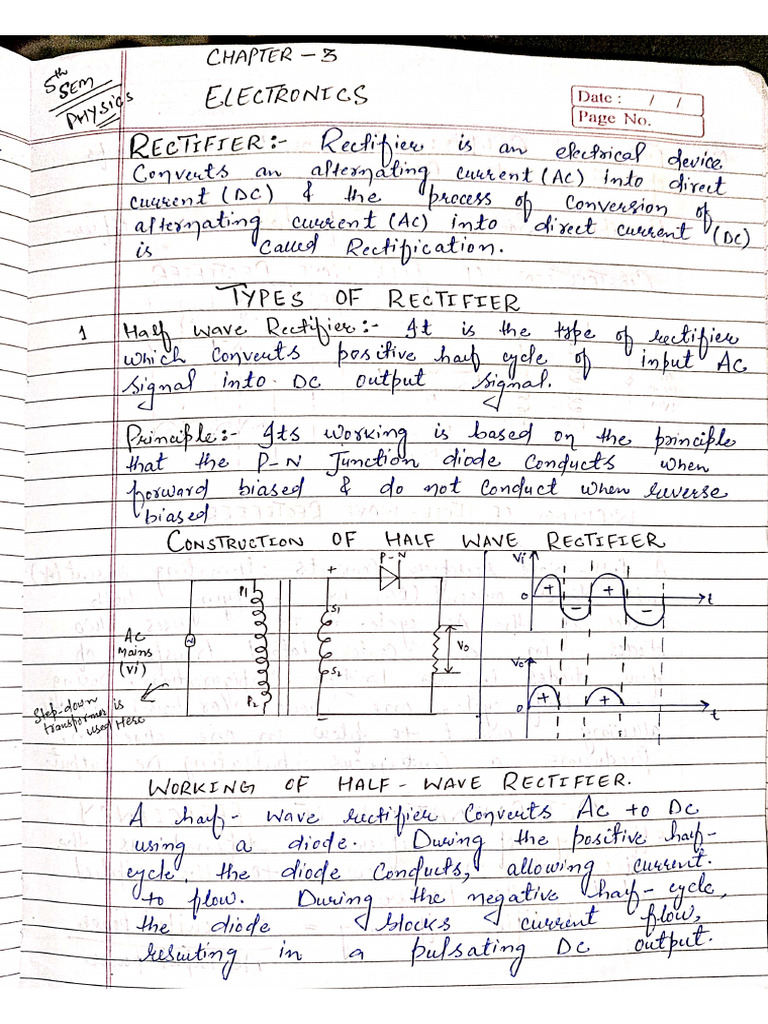 CHAPTER - 3
5th SEM PHYSICS
ELECTRONICS
Date : / /
Page No.
RECTIFIER:- Rectifier is an electrical device.
Converts an alternating current (AC) into direct
current (DC) & the process of conversion of
alternating current (AC) into direct current (DC)
is called Rectification.
TYPES OF RECTIFIER
1 Half wave Rectifier:- It is the type of rectifier
which converts positive half cycle of input AC
signal into DC output signal.
Principle:- Its working is based on the principle
that the P-N Junction diode conducts when
forward biased & do not conduct when reverse
biased
CONSTRUCTION OF HALF WAVE RECTIFIER
P-N
Vi
+
P1
S1
0 + - + - t
AC
Mains
(Vi)
V0
S2
V0
P2
0 + + t
Step-down
transformer is
used Here
WORKING OF HALF-WAVE RECTIFIER.
A half-wave rectifier converts AC to DC
using a diode. During the positive half-
cycle, the diode conducts, allowing current.
to flow. During the negative half-cycle,
the diode blocks current flow,
resulting in a pulsating DC output.